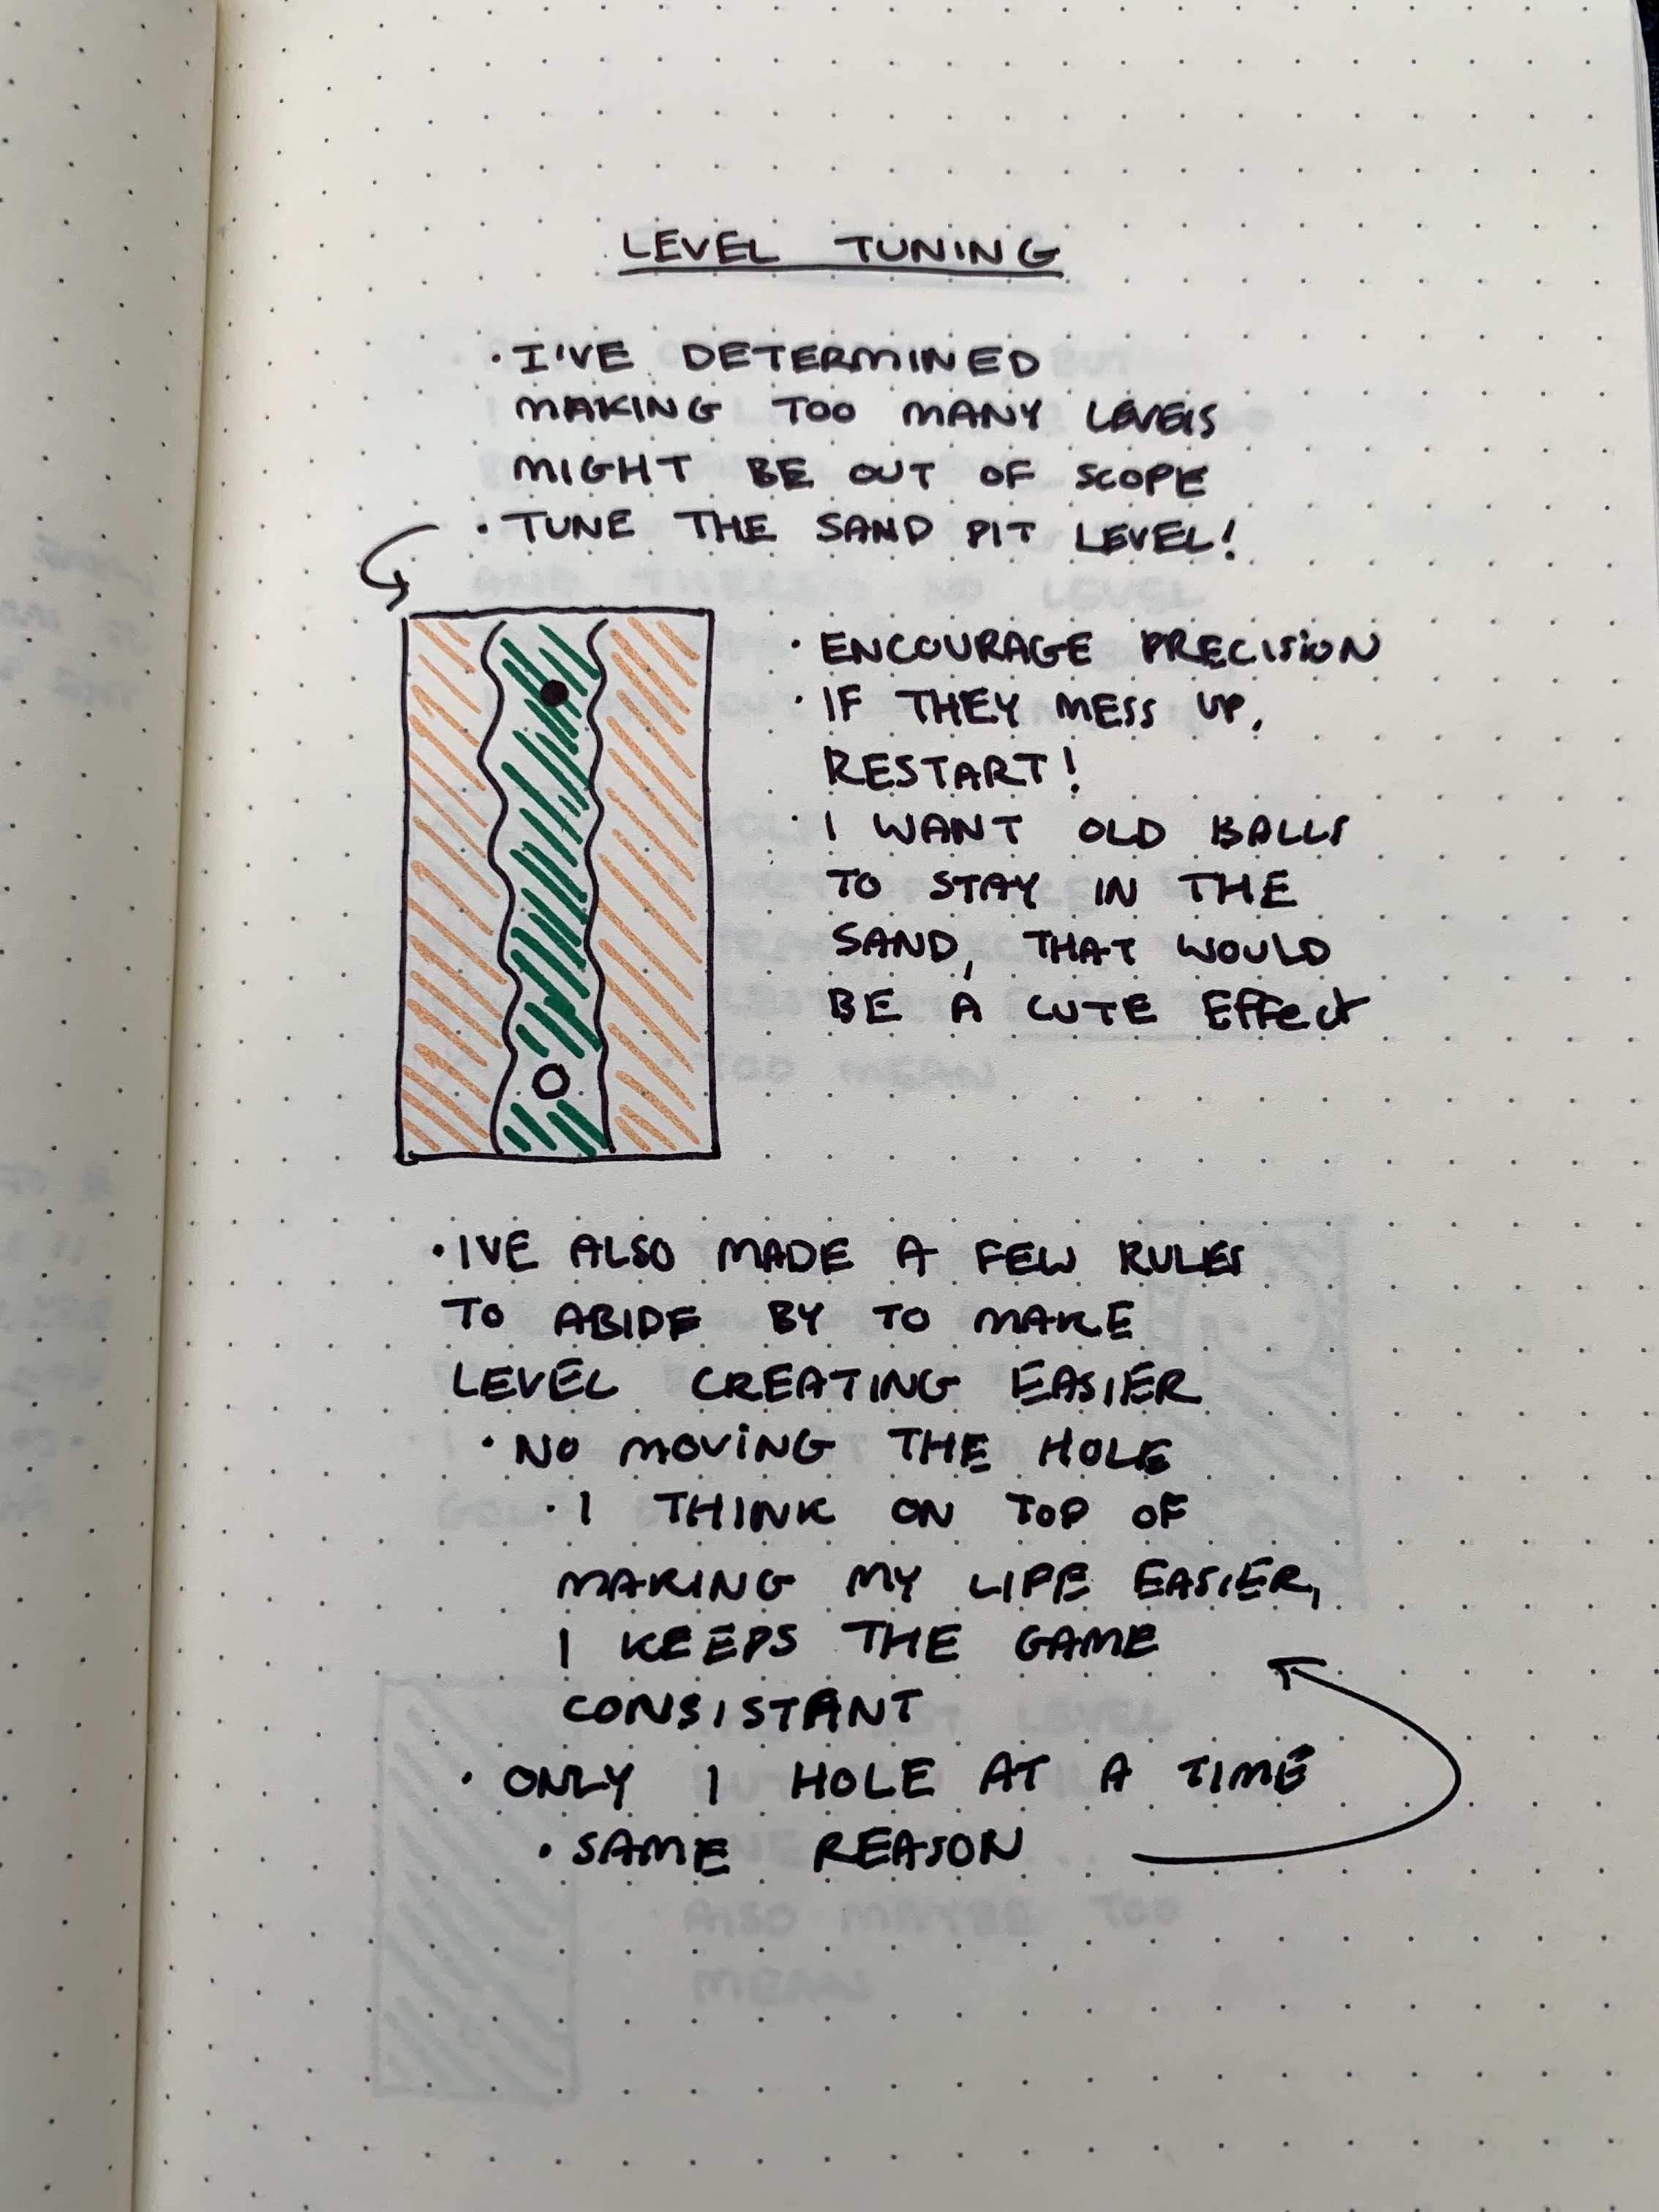 LEVEL TUNING
· I'VE DETERMINED
MAKING TOO MANY LEVELS
MIGHT BE OUT OF SCOPE
· TUNE THE SAND PIT LEVEL!
· ENCOURAGE PRECISION
· IF THEY MESS UP,
RESTART!
· I WANT OLD BALLS
TO STAY IN THE
SAND, THAT WOULD
BE A CUTE EFFECT
· IVE ALSO MADE A FEW RULES
TO ABIDE BY TO MAKE
LEVEL CREATING EASIER
· NO MOVING THE HOLE
· I THINK ON TOP OF
MAKING MY LIFE EASIER,
I KEEPS THE GAME
CONSISTANT
· ONLY 1 HOLE AT A TIME
· SAME REASON
ALSO MAYBE TOO
MEAN